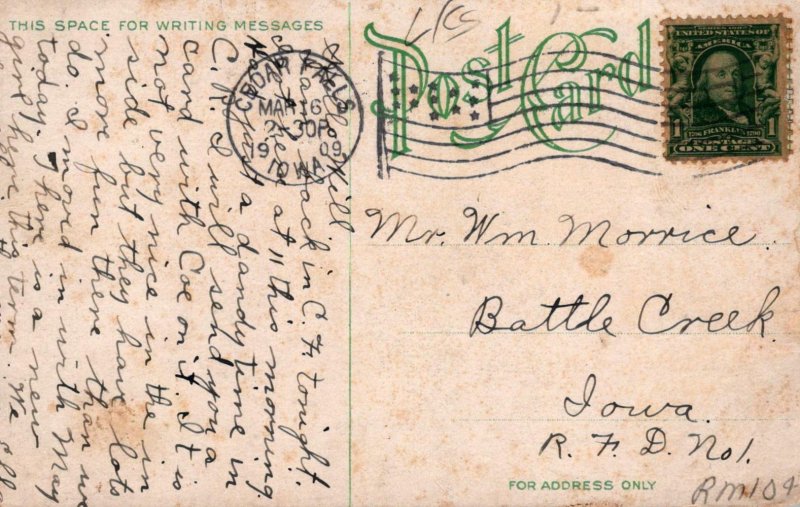 THIS SPACE FOR WRITING MESSAGES
Hello Will
I am back in C. F. tonight.
at 11 this morning
a dandy time in
C. R. I will send you a
card with Coe on it. It is
not very nice in the in
side but they have lots
more fun there than we
do. I moved in with May
today. There is a new
girl here this term. We
CEDAR FALLS
MAR 16
30P
1909
IOWA
Post Card
SERIES 1902
UNITED STATES OF
AMERICA
1706 FRANKLIN 1790
1 POSTAGE 1
ONE CENT
Mr. Wm Morrice.
Battle Creek
Iowa.
R. F. D. No 1.
FOR ADDRESS ONLY
RM104